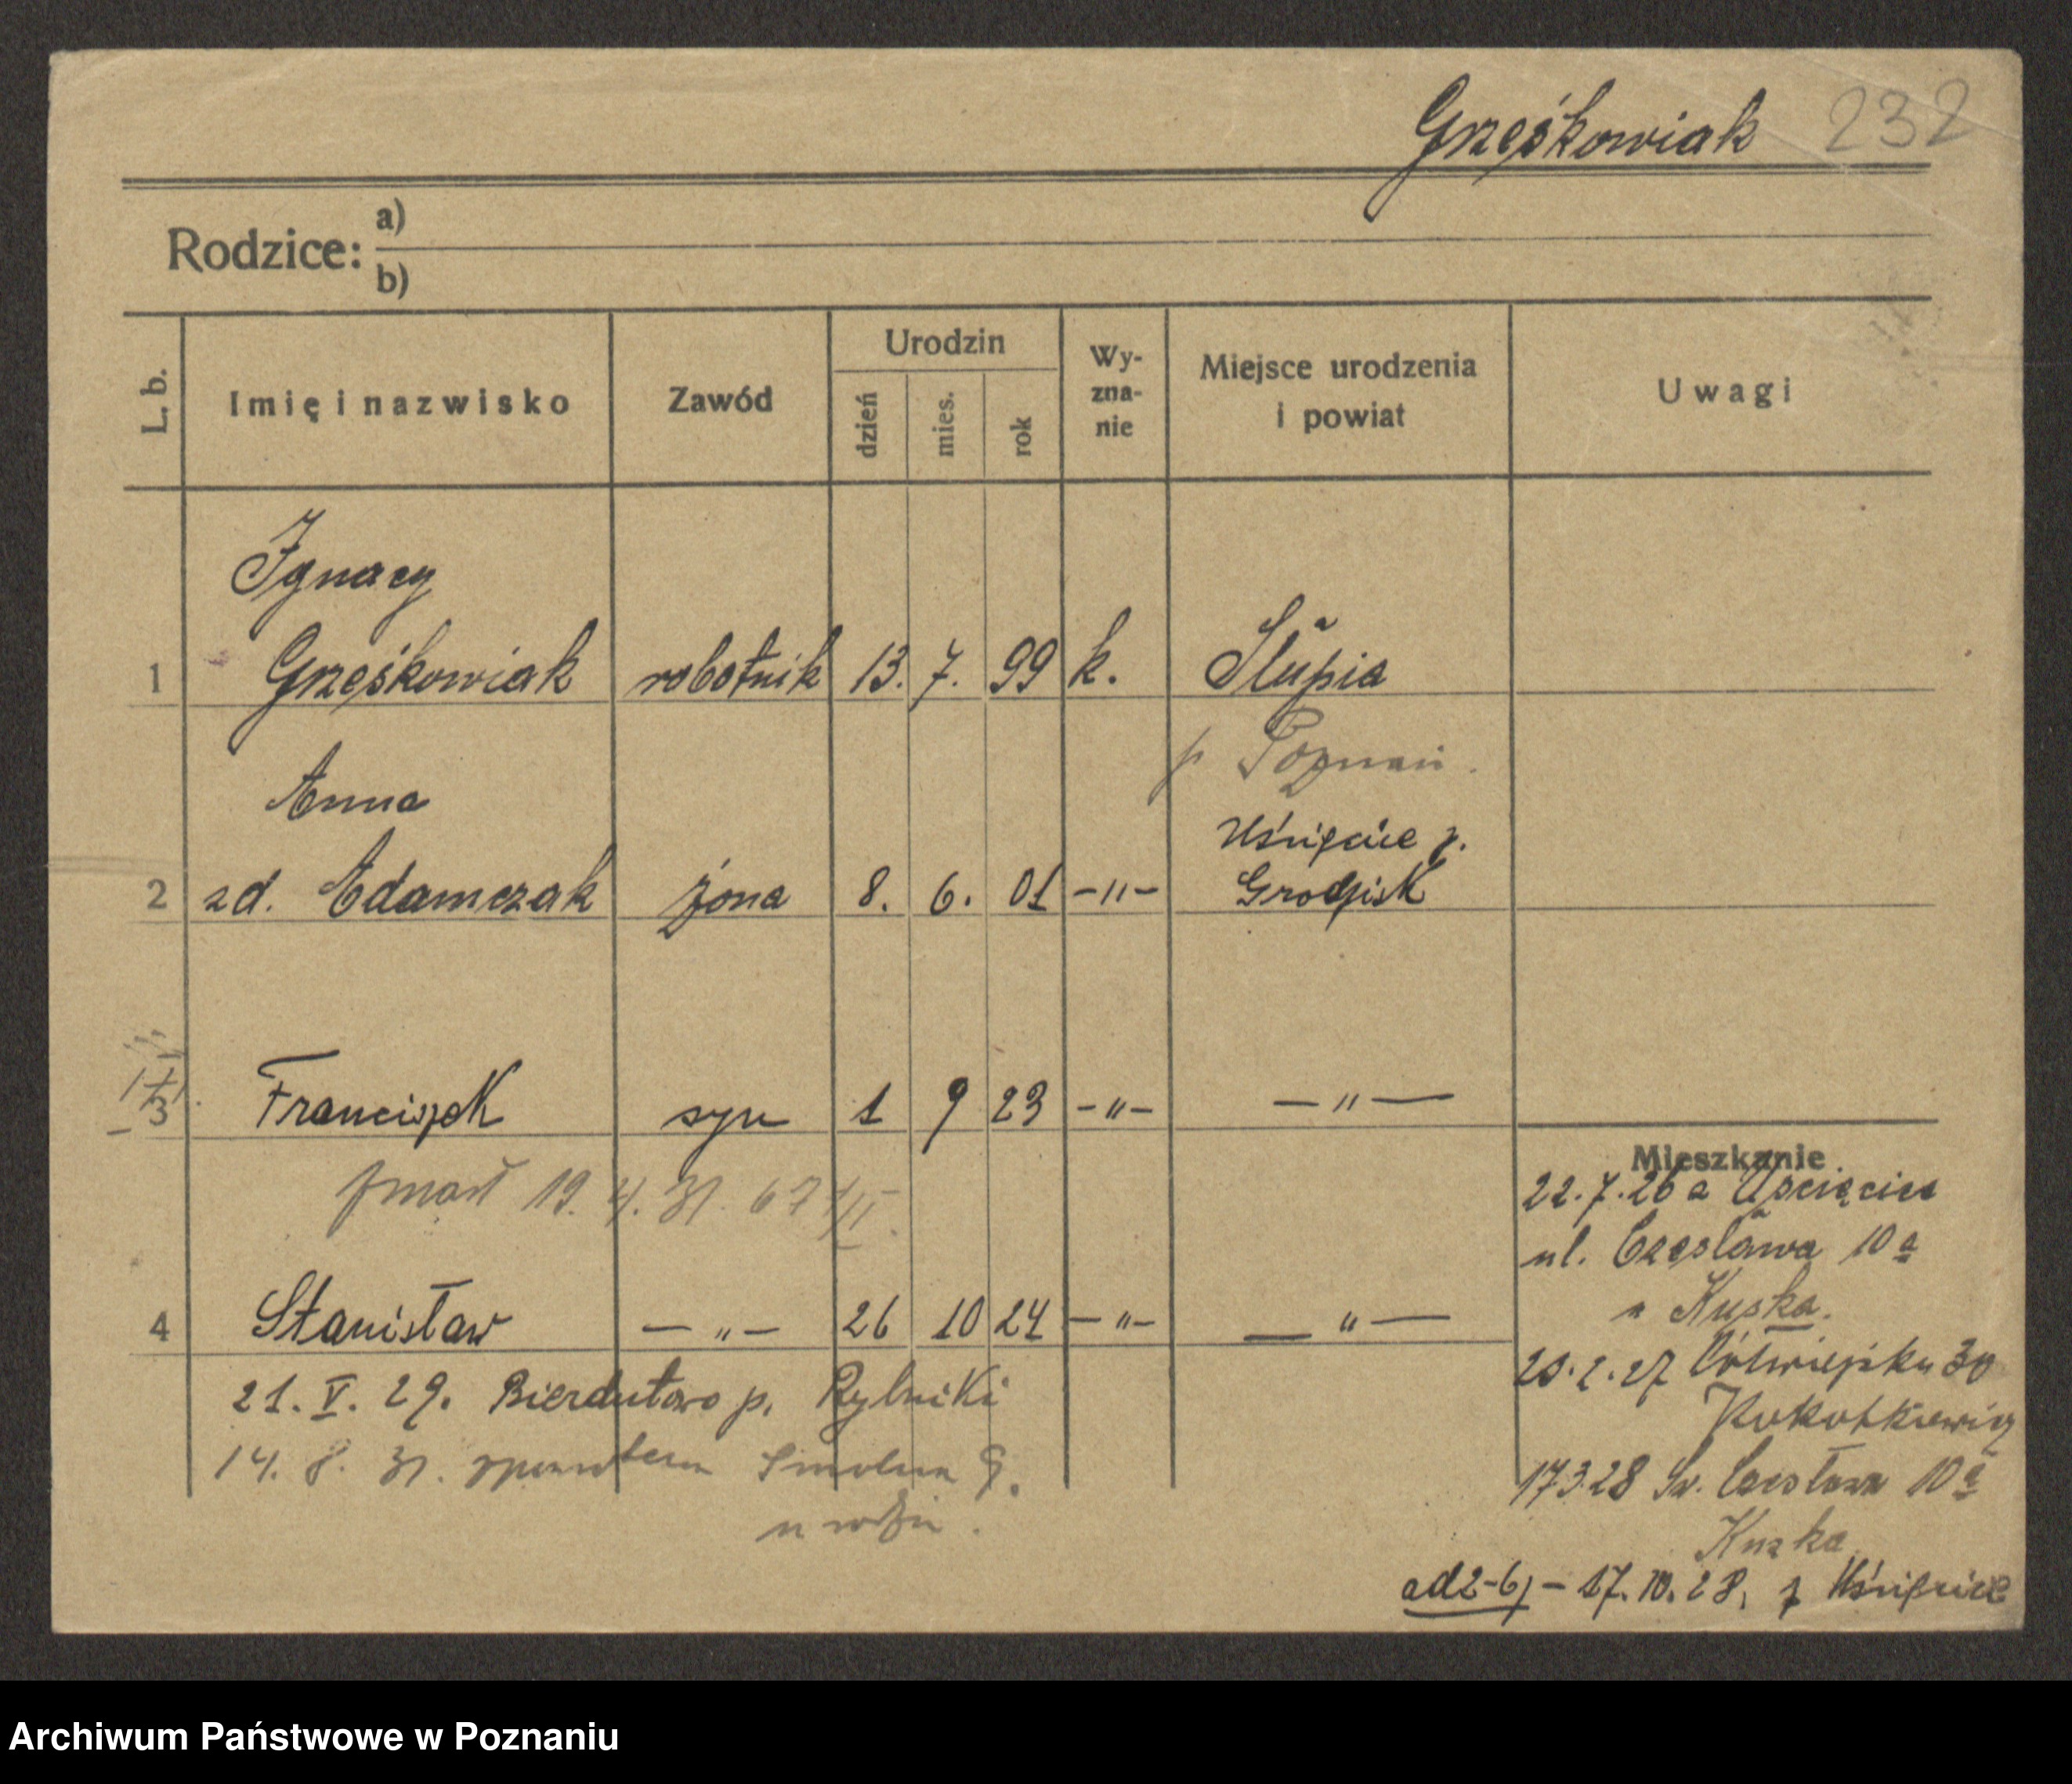 Grześkowiak 232
Rodzice: a)
b)
L. b. Imię i nazwisko Zawód Urodzin dzień mies. rok Wy-zna-nie Miejsce urodzenia i powiat Uwagi
Ignacy
1 Grześkowiak robotnik 13. 7. 99 k. Słupia
p Poznań.
Anna
Uścięcice p.
2 zd. Adamczak żona 8. 6. 01 -"- Grodzisk
3 Franciszek syn 1 9 23 -"- -"-
zmarł 19. 4. 31. 671/II
4 Stanisław -"- 26 10 24 -"- -"-
21. V. 29. p.
14. 8. 31. 9.
Mieszkanie
22.7.26 z Uścięcice
ul. Czesława 10a
u Kuska.
20.2.27 Półwiejska 30
17.3.28 Św. Czesława 10a
Kuzka
ad 2-6) - 17.10.28. z Uścięcice
Archiwum Państwowe w Poznaniu